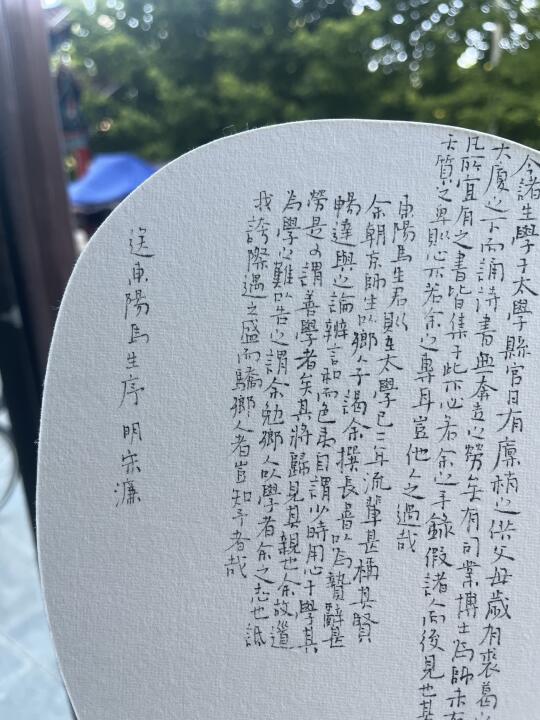 今諸生學于太學縣官日有廩稍之供父母歲有裘葛
大廈之下而誦詩書無奔走之勞矣有司業博士為師未有
凡所宜有之書皆集于此不必若余之手錄假諸人而後見也其
天質之卑則心不若余之專耳豈他人之過哉
東陽馬生君則在太學已二年流輩甚稱其賢
余朝京師生以鄉人子謁余撰長書以為贄辭甚
暢達與之論辨言和而色夷自謂少時用心于學甚
勞是可謂善學者矣其將歸見其親也余故道
為學之難以告之謂余勉鄉人以學者余之志也詆
我誇際遇之盛而驕鄉人者豈知予者哉
送東陽馬生序 明 宋濂